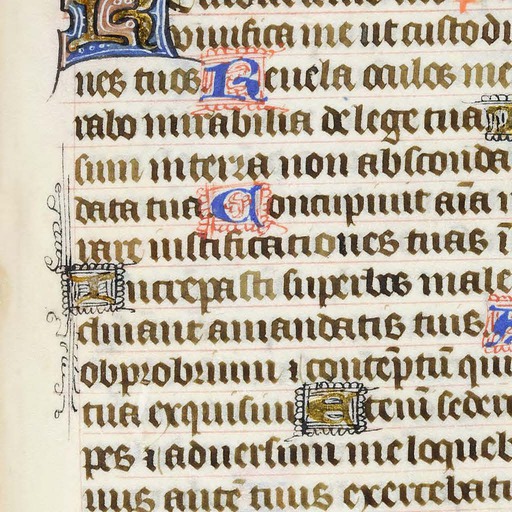 uiuifica me ut custodi
nes tuos Reuela oculos me
rabo mirabilia de lege tua
sum in terra non absconda
data tua Concupiuit aīa
rare iustificationes tuas ī
Increpasti superbos male
clinant a mandatis tuis
obprobrium ⁊ contēptū qui
tua exquisiui Etenī seder
pes ⁊ aduersum me loqueb
uus autē tuus exercebati